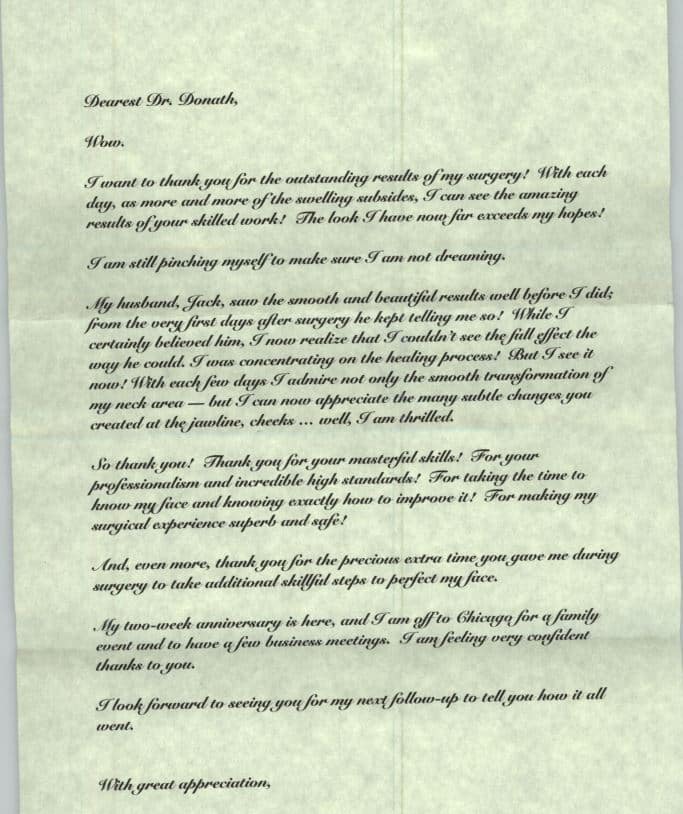 Dearest Dr. Donath,
Wow.
I want to thank you for the outstanding results of my surgery! With each
day, as more and more of the swelling subsides, I can see the amazing
results of your skilled work! The look I have now far exceeds my hopes!
I am still pinching myself to make sure I am not dreaming.
My husband, Jack, saw the smooth and beautiful results well before I did;
from the very first days after surgery he kept telling me so! While I
certainly believed him, I now realize that I couldn't see the full effect the
way he could. I was concentrating on the healing process! But I see it
now! With each few days I admire not only the smooth transformation of
my neck area — but I can now appreciate the many subtle changes you
created at the jawline, cheeks ... well, I am thrilled.
So thank you! Thank you for your masterful skills! For your
professionalism and incredible high standards! For taking the time to
know my face and knowing exactly how to improve it! For making my
surgical experience superb and safe!
And, even more, thank you for the precious extra time you gave me during
surgery to take additional skillful steps to perfect my face.
My two-week anniversary is here, and I am off to Chicago for a family
event and to have a few business meetings. I am feeling very confident
thanks to you.
I look forward to seeing you for my next follow-up to tell you how it all
went.
With great appreciation,